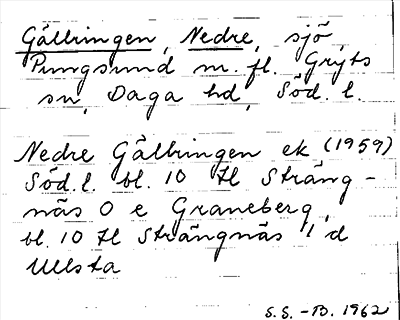 Gällringen, Nedre, sjö
Pungsund m. fl. Gryts
sn, Daga hd, Söd. l.
Nedre Gällringen ek (1959)
Söd. l. bl. 10 Hl Sträng-
näs O e Graneberg,
bl. 10 Hl Strängnäs 1 d
Ullsta
S.S. -B. 1962